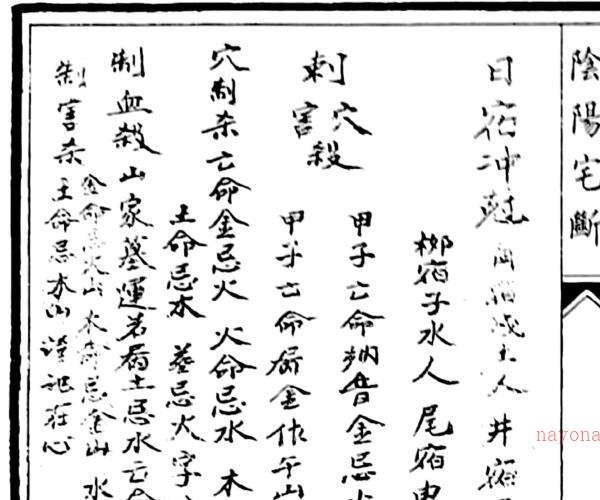 陰陽宅斷
日宿冲尅 角宿戌土人 井宿
柳宿子水人 尾宿
刺穴害殺
甲子亡命納音金忌火
甲子亡命屬金作午山
穴制杀亡命金忌火 火命忌水 木
土命忌木 墓忌火字
制血殺山家墓運若屬土忌水亡命
制害杀 金命忌火山 木命忌金山 水
土命忌木山 謹記在心
nayona